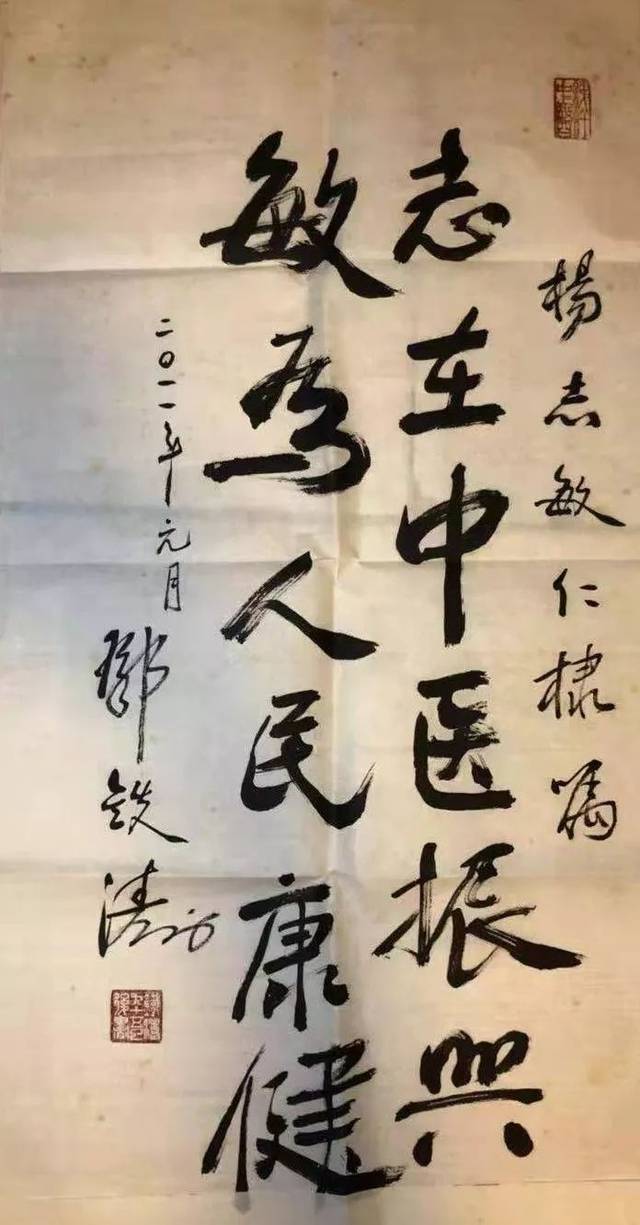 楊志敏仁棣嘱
志在中医振興
敏為人民康健
二〇一一年元月
鄧鉄涛